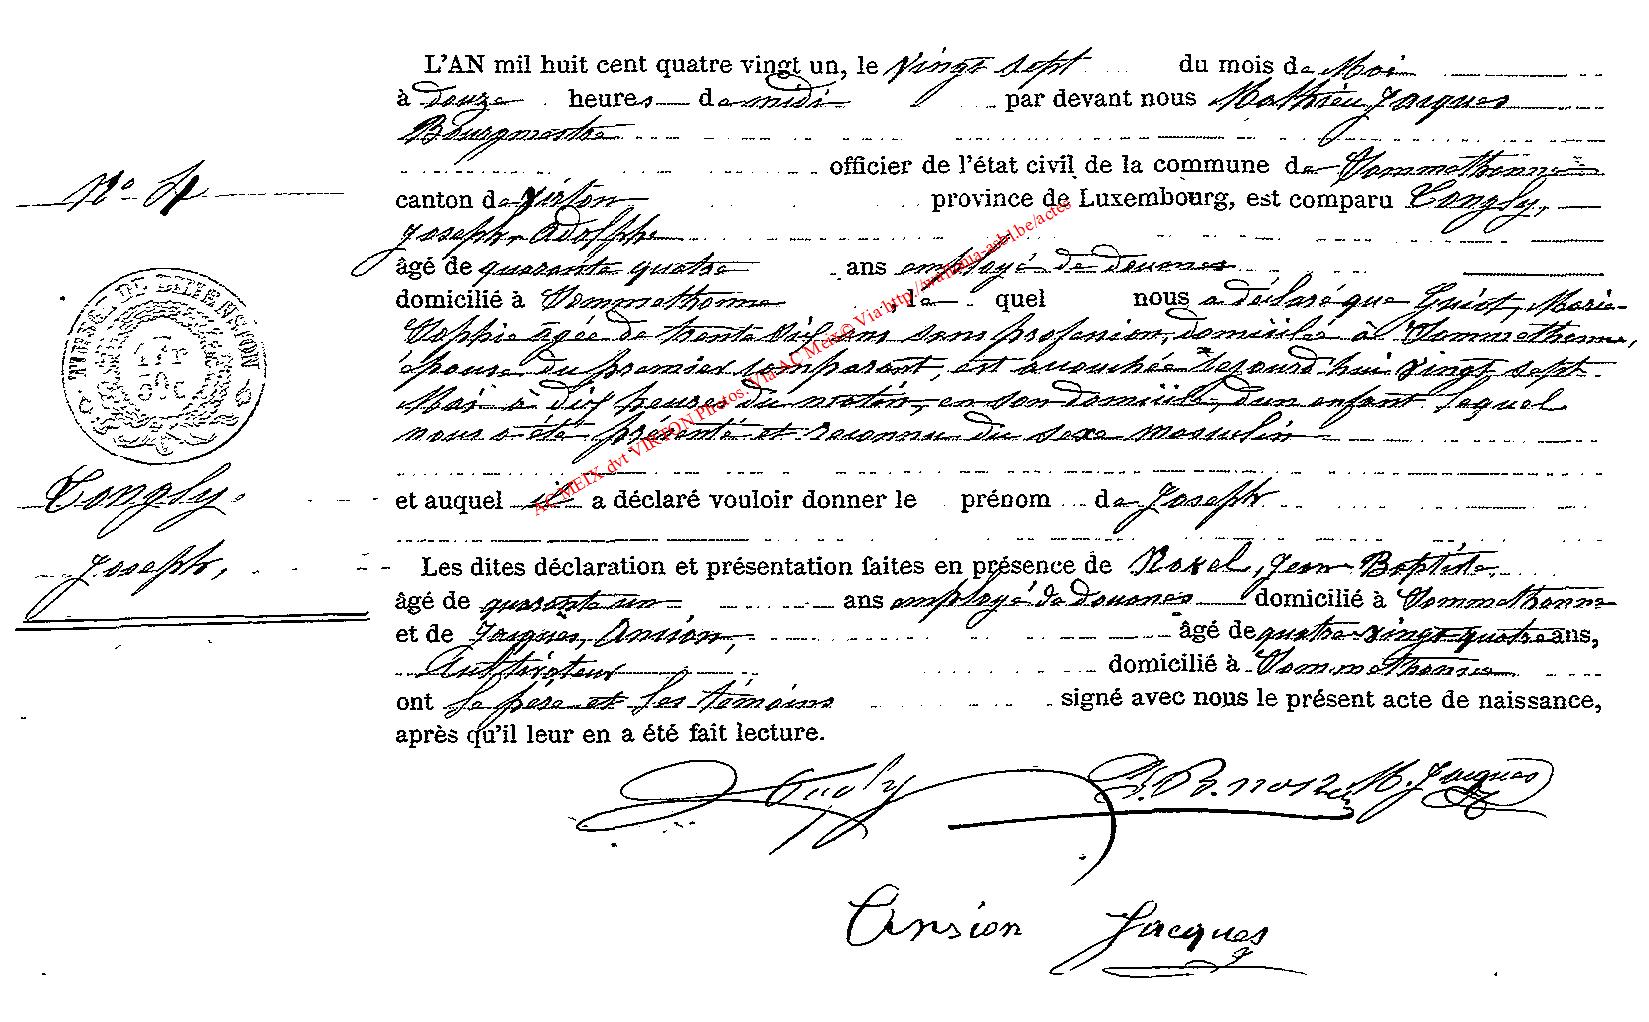 L'AN mil huit cent quatre vingt un, le Vingt sept du mois de Mai
à douze heures de midi par devant nous Mathieu Jacques
Bourgmestre
officier de l'état civil de la commune de Sommethonne
N° 4
canton de Virton province de Luxembourg, est comparu Tongly,
Joseph Adolphe
âgé de quarante quatre ans employé de douanes
domicilié à Sommethonne le quel nous a déclaré que Guiot, Marie
Sophie agée de trente six ans sans profession, domiciliée à Sommethonne,
épouse du premier comparant, est accouchée aujourd'hui vingt sept
Mai à dix heures du matin, en son domicile, d'un enfant lequel
nous a été présenté et reconnu du sexe masculin
Tongly.
et auquel il a déclaré vouloir donner le prénom de Joseph
Joseph,
Les dites déclaration et présentation faites en présence de Noxel, Jean Baptiste
âgé de quarante un ans employé de douanes domicilié à Sommethonne
et de Jacques, Ansion, âgé de quatre vingt quatre ans,
Cultivateur domicilié à Sommethonne
ont le père et les témoins signé avec nous le présent acte de naissance,
après qu'il leur en a été fait lecture.
Tongly M. Jacques
Ansion Jacques
AC MEIX dvt VIRTON Photos: Via AC Meix © Via http://wallonia-asbl.be/actes